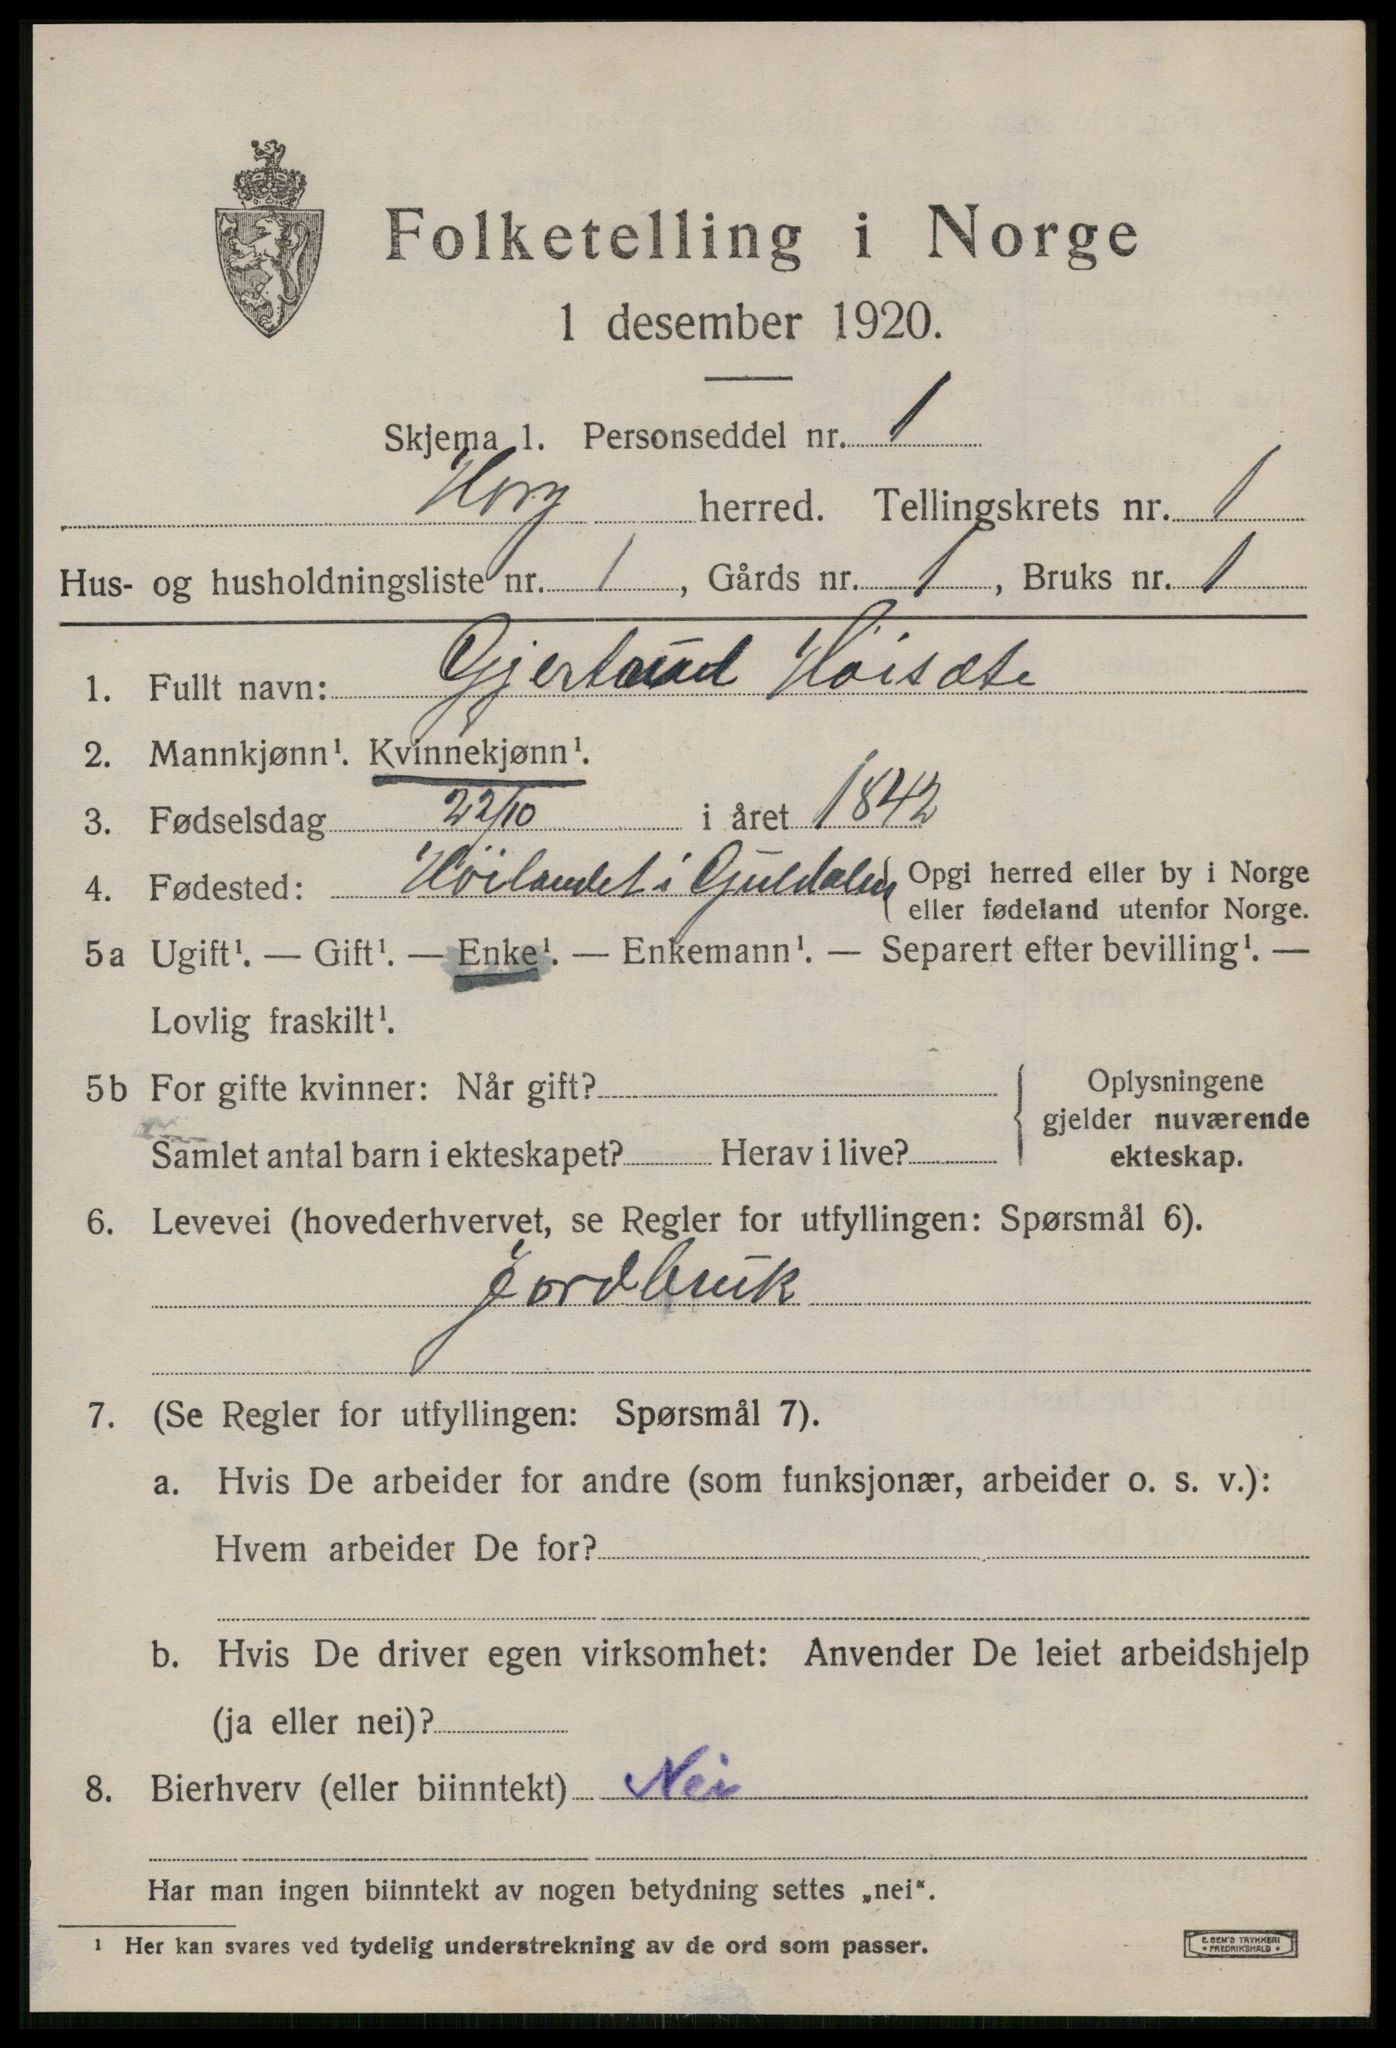 Folketelling i Norge
1 desember 1920.
Skjema 1. Personseddel nr. 1
Horg herred. Tellingskrets nr. 1
Hus- og husholdningsliste nr. 1, Gårds nr. 1, Bruks nr. 1
1. Fullt navn: Gjertrud Höisæte
2. Mannkjønn¹. Kvinnekjønn¹.
3. Fødselsdag 22/10 i året 1842
4. Fødested: Höilandet i Guldalen { Opgi herred eller by i Norge
eller fødeland utenfor Norge.
5a Ugift¹. — Gift¹. — Enke¹. — Enkemann¹. — Separert efter bevilling¹. —
Lovlig fraskilt¹.
5b For gifte kvinner: Når gift?
Samlet antal barn i ekteskapet? Herav i live?
{ Oplysningene
gjelder nuværende
ekteskap.
6. Levevei (hovederhvervet, se Regler for utfyllingen: Spørsmål 6).
Jordbruk
7. (Se Regler for utfyllingen: Spørsmål 7).
a. Hvis De arbeider for andre (som funksjonær, arbeider o. s. v.):
Hvem arbeider De for?
b. Hvis De driver egen virksomhet: Anvender De leiet arbeidshjelp
(ja eller nei)?
8. Bierhverv (eller biinntekt) Nei
Har man ingen biinntekt av nogen betydning settes „nei“.
¹ Her kan svares ved tydelig understrekning av de ord som passer.
E. SEM'S TRYKKERI
* FREDRIKSHALD *